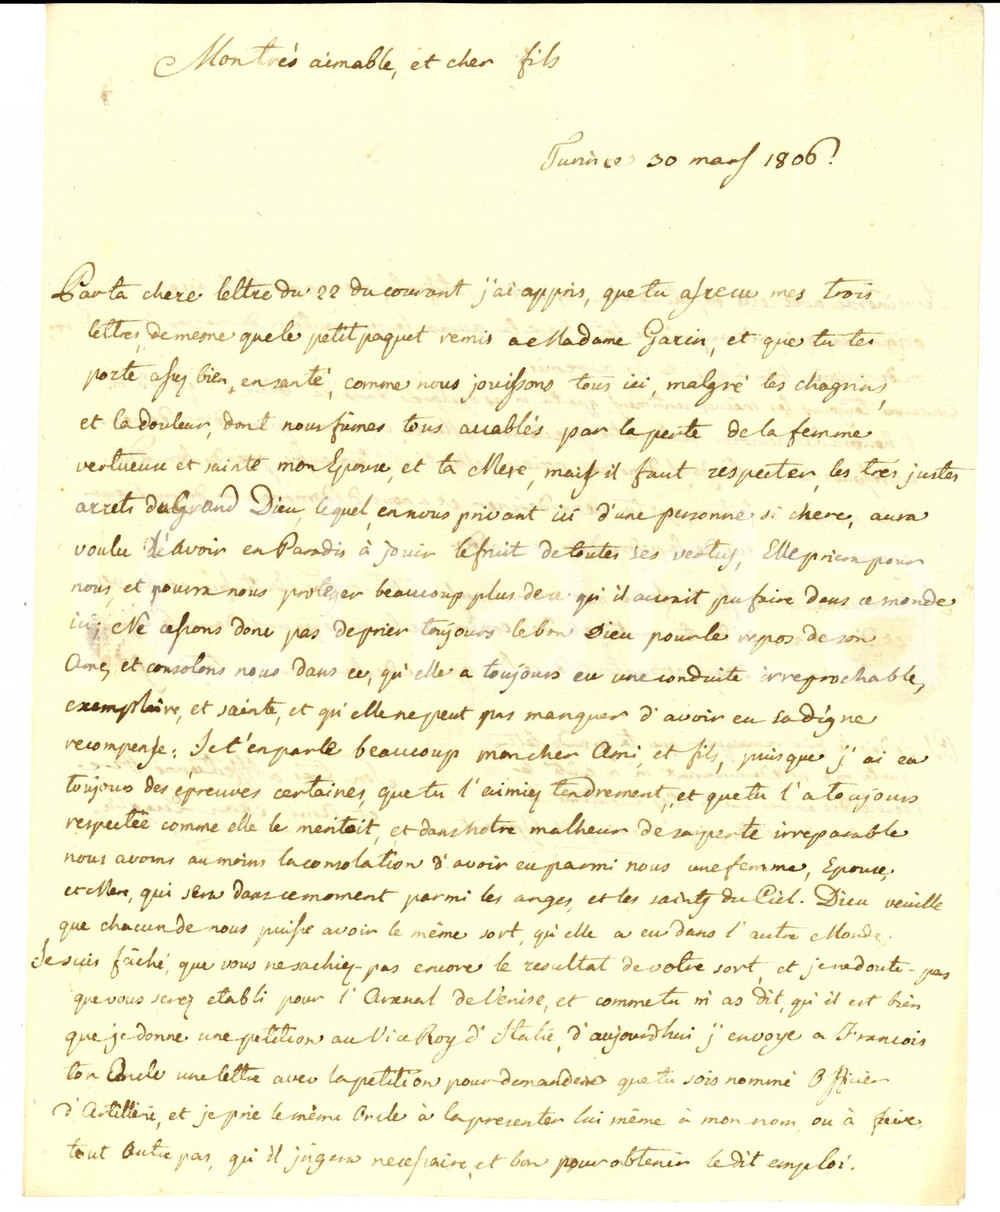 Mon trés aimable, et cher fils
30 mars 1806.
Par ta chere lettre du 22 du courant j'ai appris, que tu as recu mes trois
lettres, de meme que le petit paquet remis a Madame Garin, et que tu tes
porte assez bien, en santé, comme nous jouissons tous ici, malgré les chagrins,
et la douleur, dont nous fumes tous accablés par la perte de la femme
vertueuse et sainte mon Epouse, et ta Mere, mais il faut respecter, les trés justes
arrets du Grand Dieu, lequel, en nous privant ici d'une personne si chere, aura
voulu l'avoir en Paradis à jouir le fruit de toutes ses vertus, Elle priera pour
nous, et pourra nous proteger beaucoup plus de ce qu'il auroit pu faire dans ce monde
ici; Ne cessons donc pas de prier toujours le bon Dieu pour le repos de son
Ame, et consolons nous dans ce, qu'elle a toujours eu une conduite irreprochable,
exemplaire, et sainte, et qu'elle ne peut pas manquer d'avoir eu sa digne
recompense: Je t'en parle beaucoup mon cher Ami, et fils, puisque j'ai eu
toujours des épreuves certaines, que tu l'aimiez tendrement, et que tu l'a toujours
respectée comme elle le meritoit, et dans notre malheur de sa perte irreparable
nous avons au moins la consolation d'avoir eu parmi nous une femme, Epouse,
et Mere, qui sera dans ce moment parmi les anges, et les saints du Ciel. Dieu veuille
que chacun de nous puisse avoir le même sort, qu'elle a eu dans l'autre Monde.
Je suis fâché, que vous ne sachiez-pas encore le resultat de votre sort, et je ne doute-pas
que vous serez etabli pour l'Arsenal de Venise, et comme tu m'as dit, qu'il est bien
que je donne une petition au Vice Roy d'Italie, d'aujourdhui j'envoye a Francois
ton Oncle une lettre avec la petition pour demander que tu sois nommé Officier
d'Artillerie, et je prie le même Oncle à la presenter lui même à mon nom, ou à faire
tout autre pas, qu'il jugera necessaire, et bon pour obtenir le dit emploi.